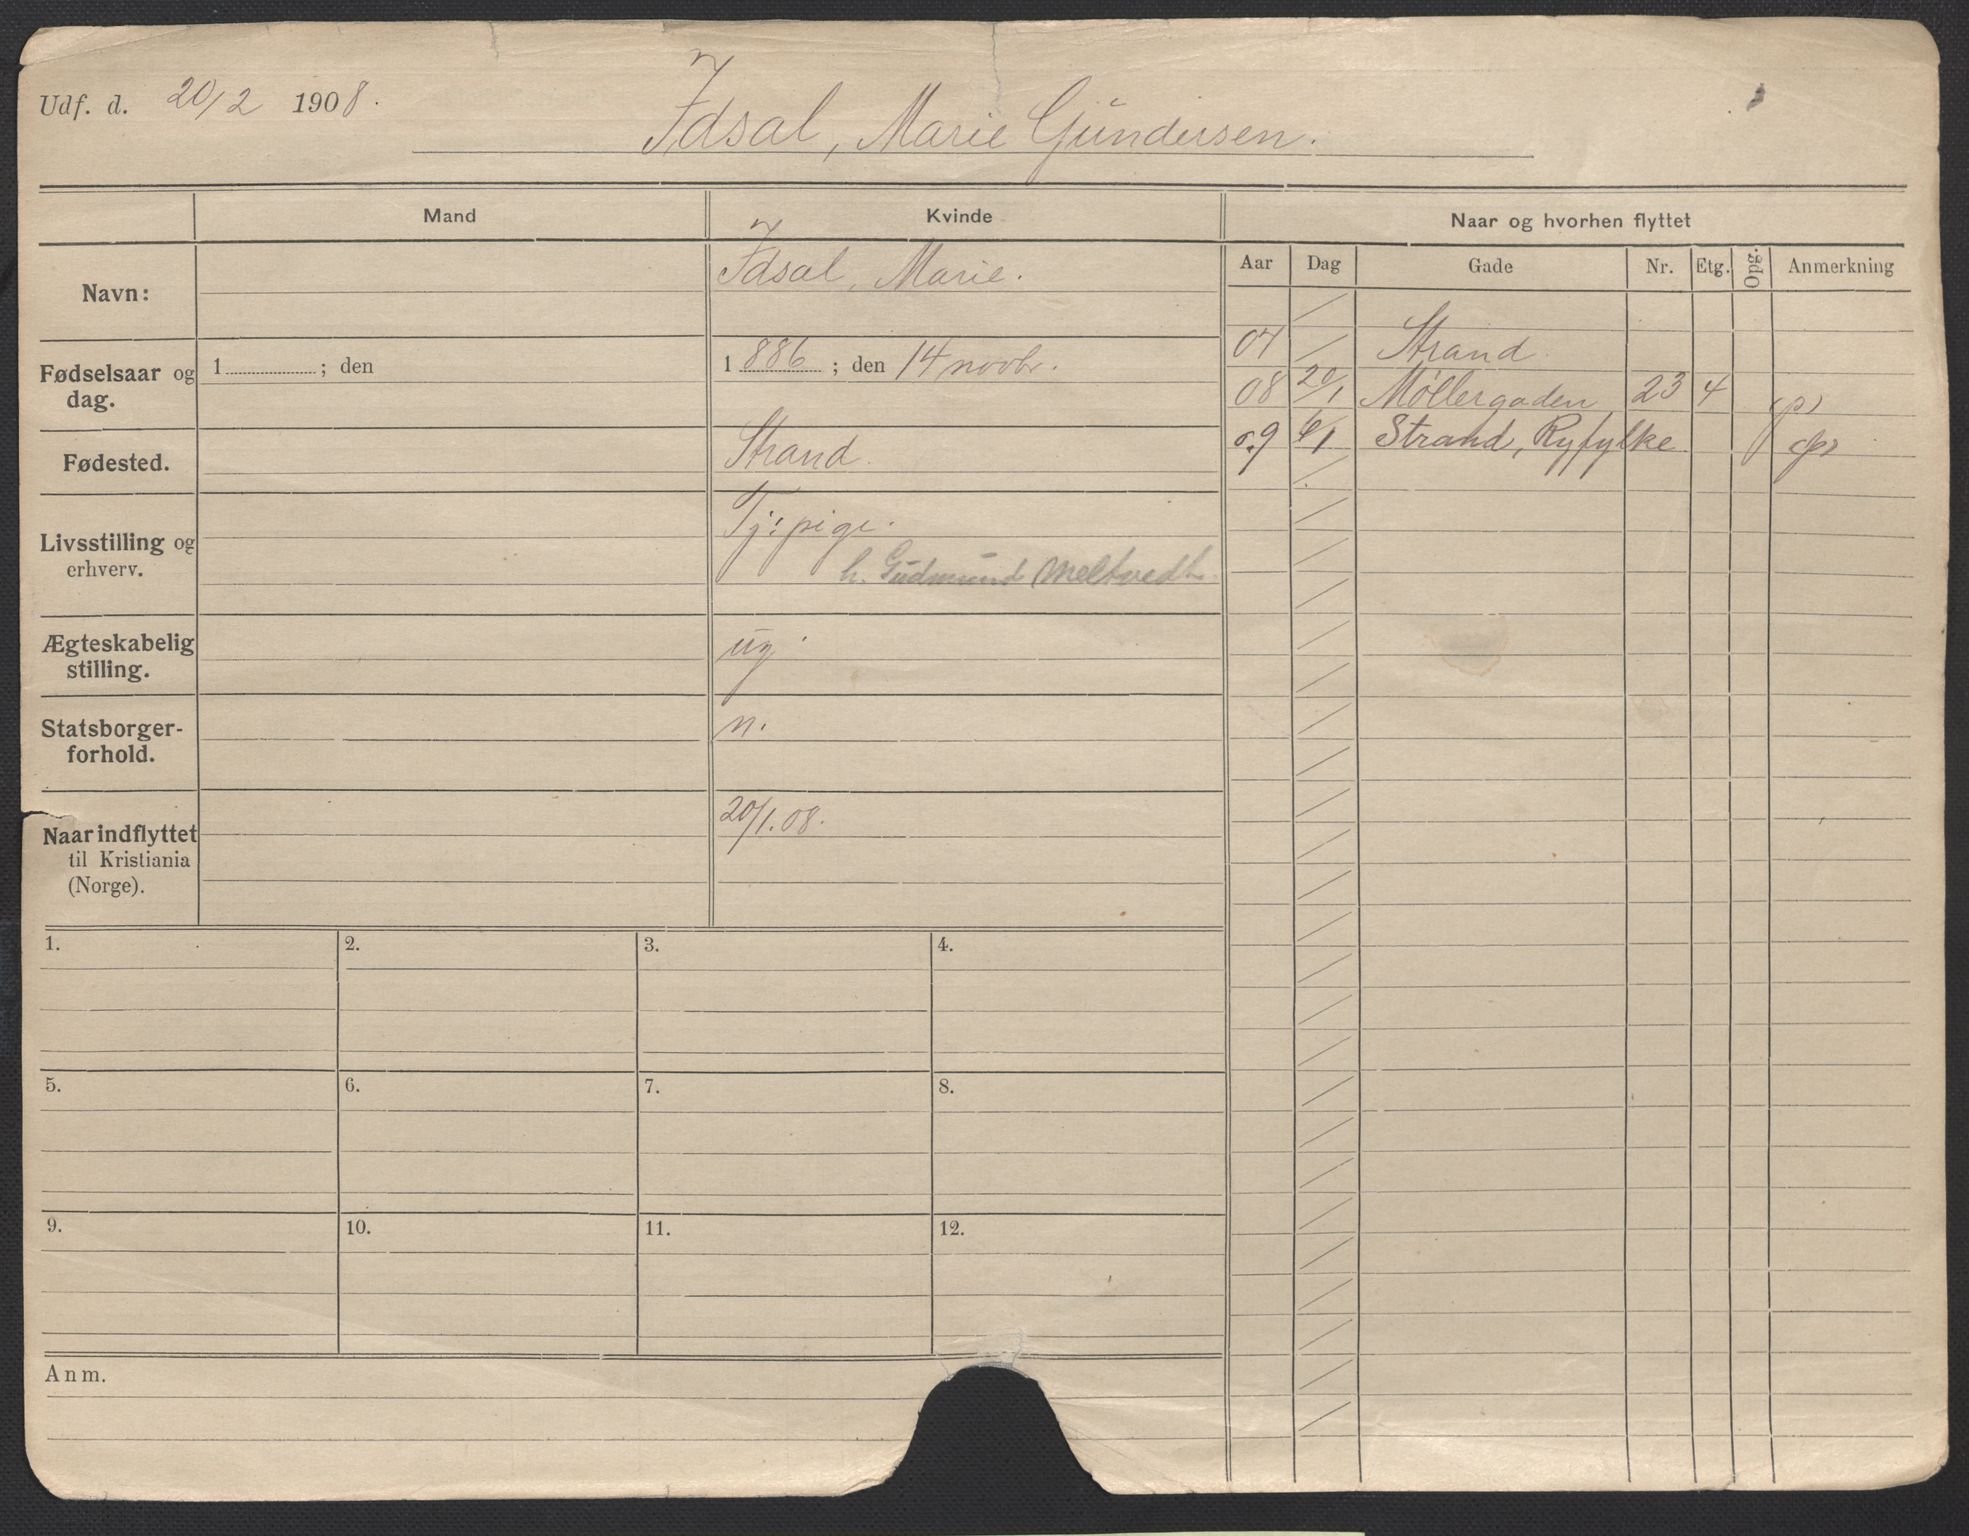 Udf. d. 20/2 1908.
Idsal, Marie Gundersen.
Mand
Kvinde
Naar og hvorhen flyttet
Aar Dag Gade Nr. Etg. Opg. Anmerkning
Navn:
Idsal, Marie.
Fødselsaar og
dag.
1 ; den
1 886 ; den 14 novbr.
Fødested.
Strand
Livsstilling og
erhverv.
Tj: pige.
h. Gudmund Meltvedt
Ægteskabelig
stilling.
ug
Statsborger-
forhold.
n.
Naar indflyttet
til Kristiania
(Norge).
20/1.08.
07 / Strand
08 20/1 Møllergaden 23 4 (p)
09 6/1 Strand, Ryfylke
1. 2. 3. 4.
5. 6. 7. 8.
9. 10. 11. 12.
Anm.